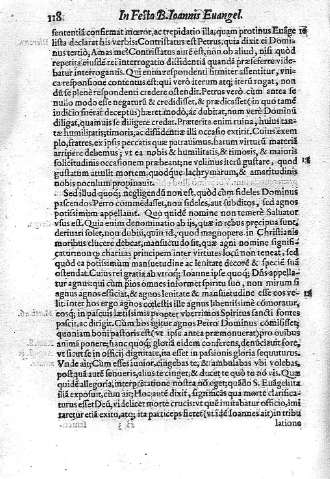 118. In Festo B. Ioannis Euangel.
sententiã confirmat mœror, ac trepidatio illa, quam protinus Euãge
lista declarat his verbis: Contristatus est Petrus, quia dixit ei Domi
nus tertiò, Amas me? Contristatus aũt est, nõ ob aliud, nisi quòd
repetita eiusdẽ rei interrogatio diffidentiã quandã præseferre vide-
batur interrogantis. Qui enim respondenti firmiter assentitur, vni-
ca responsione contentus est: qui verò iterum atq; iterũ rogat, non
dũ se plenè respondenti credere ostendit. Petrus verò cùm antea se
nullo modo esse negaturũ & credidisset, & prædicasset; in quo tamẽ
iudicio fuerat deceptus; hæret modò, ac dubitat, num verè Dominũ
diligat, quamuis se diligere credat. Præterita enim ruina, huius tan-
tæ humilitatis, timoris, ac diffidentiæ illi occasio extitit. Cuius exem
plo, fratres, ex ipsis peccatis quæ patrauimus, harum virtutũ materiã
arripere debemus; vt ea nobis & humilitatis, & timoris, & maioris
solicitudinis occasionem præbeant; ne velimus iterũ gustare, quod
gustatum attulit mortem, quodque lachrymarum, & amaritudinis
nobis poculum propinauit.
Sed illud quoq; negligendũ non est, quòd cùm fideles Dominus
pascendos Petro commẽdasset, non fideles, aut subditos, sed agnos
potissimùm appellauit. Quo quidẽ nomine non temerè Saluator
vsus est. Quia enim denominatio ab ijs, quæ in rebus præcipua sunt,
deriuari solet, non dubiũ, quin id, quod magnopere in Christianis
moribus elucere debeat, mansuetudo sit, quæ agni nomine signifi-
catur: non quòd charitas principem inter virtutes locũ non teneat, sed
quòd ea potissimùm mansuetudine ac lenitate decorè & specie sua
ostendat. Cui us rei gratia ab vtroq; Ioanne ipse quoq; Dñs appella-
tur agnus: qui cùm pios omnes informet spiritu suo, non mirum si
agnus agnos efficiat, & agnos lenitate & mansuetudine esse eos ve-
lit. Inter hos ergo agnos cœlestis ille agnus libentissimè cõmoratur,
eosq; in pascuis lætissimis propter vberrimos Spiritus sancti fontes
poscit, ac dirigit. Cùm hos igitur agnos Petro Dominus cõmisisset;
quoniam boni pastoris est (vt ipse antea præmonuerat) pro ouibus
animã ponere; hanc quoq; gloriã eidem conferens, denũciauit fore,
vt sicut se in officij dignitate, ita esset in passionis gloria sequuturus.
Vnde ait: Cùm esses iunior, cingebas te, & ambulabas vbi volebas,
postquã autẽ senueris, alius te cinget, & ducet te quò tu nõ vis. Quæ
quidẽ allegoria, interpretatione nostra nõ eget; quãdo S. Euãgelista
illã exposuit, cùm ait: Hoc autẽ dixit, significãs qua morte clarifica-
turus esset Deũ, videlicet morte crucis: vt quẽ imitabatur officio, imi
taretur etiã exitu, atq; ita particeps fieret (vt idẽ Ioannes ait) in tribu
latione